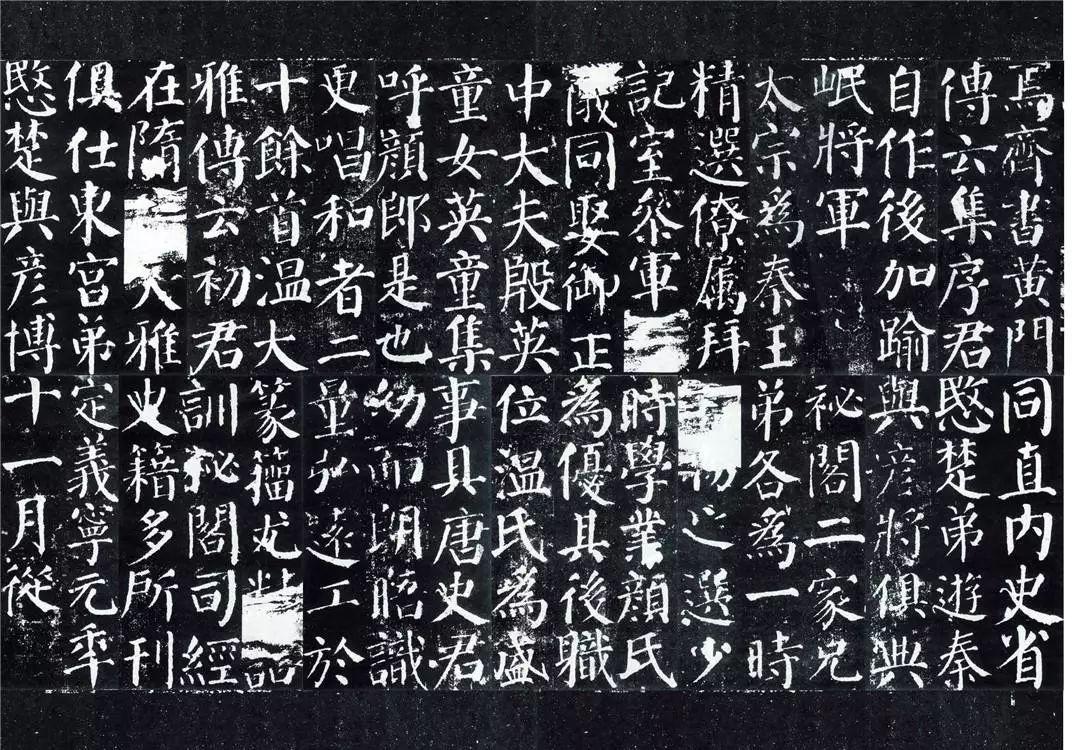 焉齊書黃門
傳云集序君
自作後加踰
岷將軍
太宗為秦王
精選僚属拜
記室參軍
儀同娶御正
中大夫殷英
童女英童集
呼顏郎是也
更唱和者二
十餘首温大
雅傳云初君
在隋大雅
俱仕東宮弟
愍楚與彥博
同直内史省
愍楚弟遊秦
與彥將俱典
祕閣二家兄
弟各為一時
物之選少
時學業顏氏
為優其後職
位温氏為盛
事具唐史君
幼而朗晤識
量弘遠工於
篆籀尤
訓秘閣司經
史籍多所刊
定義寧元年
十一月從